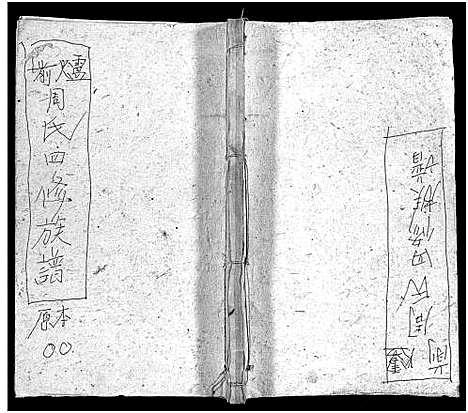 爐前
周氏四修族譜
原本
00
爐前
周氏四修族譜